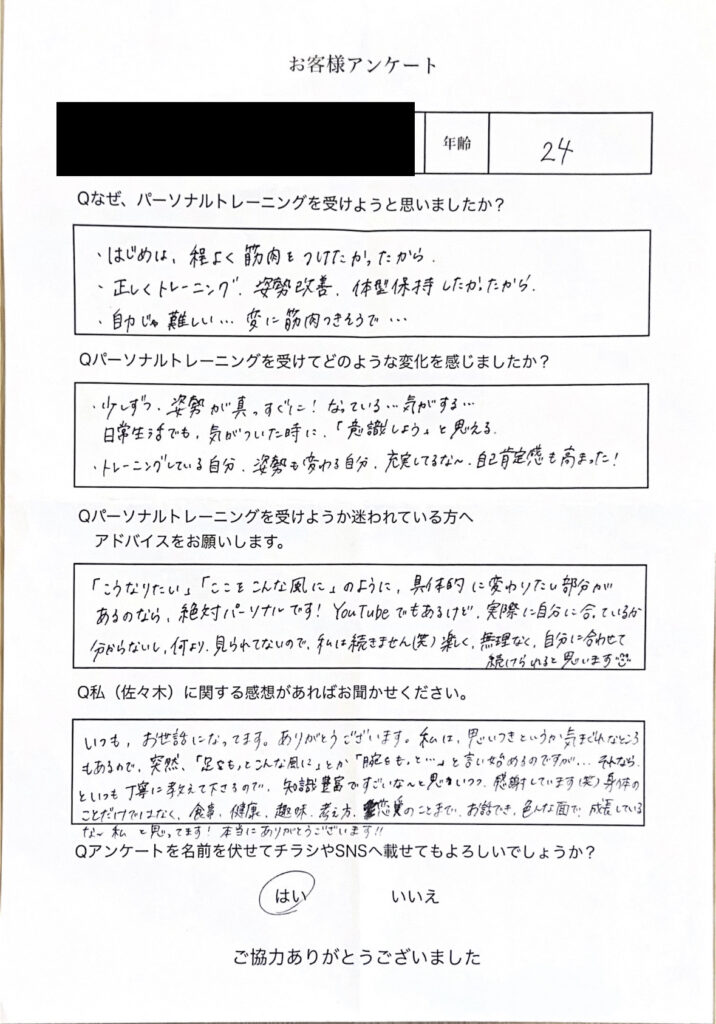 お客様アンケート
年齢
24
Qなぜ、パーソナルトレーニングを受けようと思いましたか？
・はじめは、程よく筋肉をつけたかったから.
・正しくトレーニング、姿勢改善、体型保持したかったから.
・自力じゃ難しい… 変に筋肉つきそうで…
Qパーソナルトレーニングを受けてどのような変化を感じましたか？
・少しずつ、姿勢が真っすぐに！なっている…気がする…
日常生活でも、気がついた時に、「意識しよう」と思える.
・トレーニングしている自分、姿勢も変わる自分、充実してるな〜、自己肯定感も高まった！
Qパーソナルトレーニングを受けようか迷われている方へ
アドバイスをお願いします。
「こうなりたい」「ここをこんな風に」のように、具体的に変わりたい部分が
あるのなら、絶対パーソナルです！YouTubeでもあるけど、実際に自分に合っているか
分からないし、何より、見られてないので、私は続きません(笑)楽しく、無理なく、自分に合わせて
続けられると思います
Q私（佐々木）に関する感想があればお聞かせください。
いつも、お世話になってます。ありがとうございます。私は、思いつきというか気まぐれなところ
もあるので、突然、「足をもっとこんな風に」とか「腕をもっと…」と言い始めるのですが… それなら、
といつも丁寧に教えて下さるので、知識豊富ですごいなんと思いつつ、感謝しています(笑)身体の
ことだけではなく、食事、健康、趣味、考え方、恋愛のことまで、お話でき、色んな面で、成長している
な〜私 と思ってます！本当にありがとうございます!!
Qアンケートを名前を伏せてチラシやSNSへ載せてもよろしいでしょうか？
はい いいえ
ご協力ありがとうございました